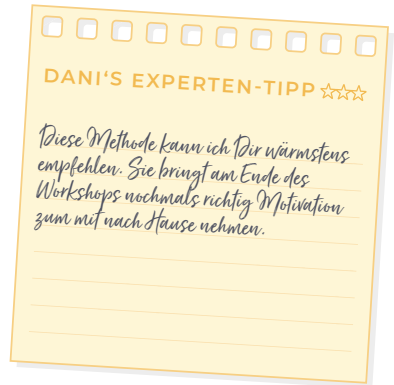 DANI‘S EXPERTEN-TIPP
Diese Methode kann ich Dir wärmstens
empfehlen. Sie bringt am Ende des
Workshops nochmals richtig Motivation
zum mit nach Hause nehmen.